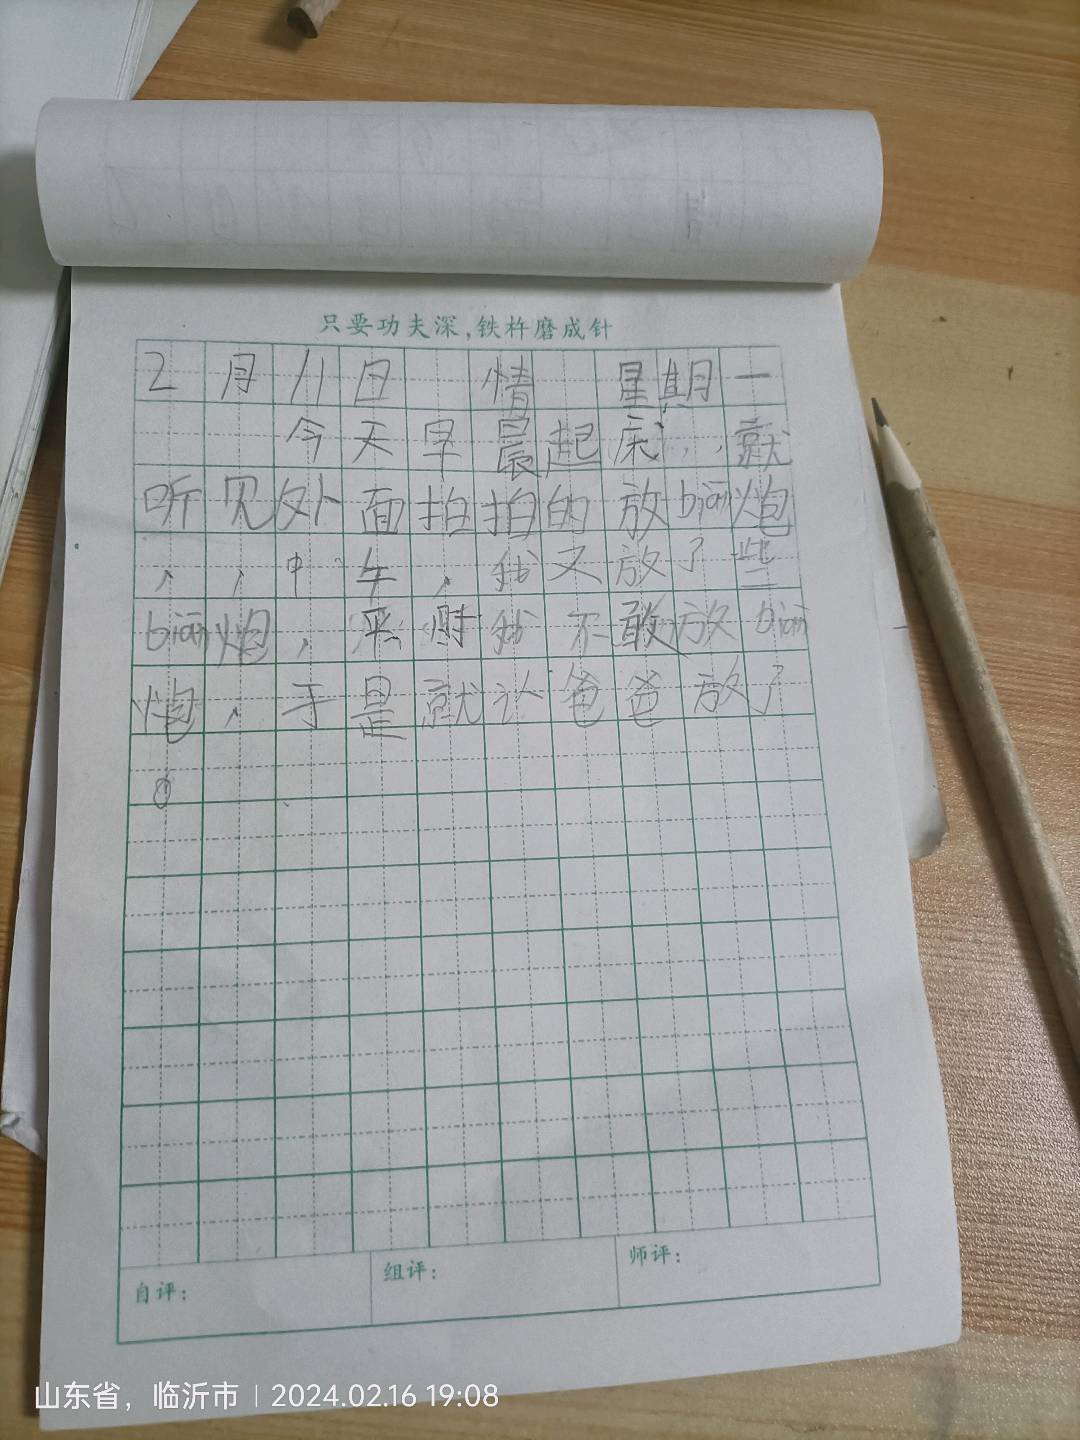 只要功夫深,铁杵磨成针
2月11日 情 星期一
今天早晨起床,,就
听见外面拍拍的放biān炮
,,中午,我又放了些
biān炮,平时我不敢放biān
炮,于是就认爸爸放了
。
自评: 组评: 师评:
山东省，临沂市 | 2024.02.16 19:08